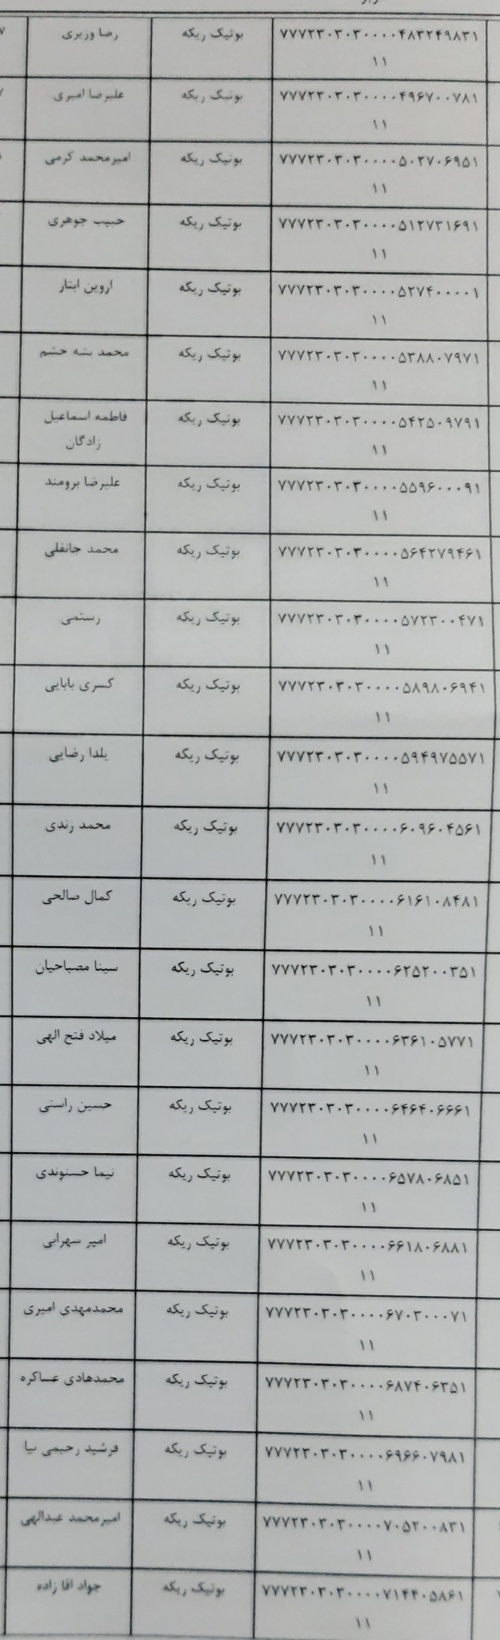 رضا وزیری بوتیک ریکه ۷۷۷۲۳۰۳۰۳۰۰۰۰۴۸۳۲۴۹۸۳۱
۱۱
علیرضا امیری بوتیک ریکه ۷۷۷۲۳۰۳۰۳۰۰۰۰۴۹۶۷۰۰۷۸۱
۱۱
امیرمحمد کرمی بوتیک ریکه ۷۷۷۲۳۰۳۰۳۰۰۰۰۵۰۲۷۰۶۹۵۱
۱۱
حبیب جوهری بوتیک ریکه ۷۷۷۲۳۰۳۰۳۰۰۰۰۵۱۲۷۳۱۶۹۱
۱۱
اروین ابتار بوتیک ریکه ۷۷۷۲۳۰۳۰۳۰۰۰۰۵۲۷۴۰۰۰۰۱
۱۱
محمد بنه حشم بوتیک ریکه ۷۷۷۲۳۰۳۰۳۰۰۰۰۵۳۸۸۰۷۹۷۱
۱۱
فاطمه اسماعیل بوتیک ریکه ۷۷۷۲۳۰۳۰۳۰۰۰۰۵۴۲۵۰۹۷۹۱
زادگان ۱۱
علیرضا برومند بوتیک ریکه ۷۷۷۲۳۰۳۰۳۰۰۰۰۵۵۹۶۰۰۰۹۱
۱۱
محمد جانقلی بوتیک ریکه ۷۷۷۲۳۰۳۰۳۰۰۰۰۵۶۴۲۷۹۴۶۱
۱۱
رستمی بوتیک ریکه ۷۷۷۲۳۰۳۰۳۰۰۰۰۵۷۲۳۰۰۴۷۱
۱۱
کسری بابایی بوتیک ریکه ۷۷۷۲۳۰۳۰۳۰۰۰۰۵۸۹۸۰۶۹۴۱
۱۱
یلدا رضایی بوتیک ریکه ۷۷۷۲۳۰۳۰۳۰۰۰۰۵۹۴۹۷۵۵۷۱
۱۱
محمد زندی بوتیک ریکه ۷۷۷۲۳۰۳۰۳۰۰۰۰۶۰۹۶۰۴۵۶۱
۱۱
کمال صالحی بوتیک ریکه ۷۷۷۲۳۰۳۰۳۰۰۰۰۶۱۶۱۰۸۴۸۱
۱۱
سینا مصباحیان بوتیک ریکه ۷۷۷۲۳۰۳۰۳۰۰۰۰۶۲۵۲۰۰۳۵۱
۱۱
میلاد فتح الهی بوتیک ریکه ۷۷۷۲۳۰۳۰۳۰۰۰۰۶۳۶۱۰۵۷۷۱
۱۱
حسین راستی بوتیک ریکه ۷۷۷۲۳۰۳۰۳۰۰۰۰۶۴۶۴۰۶۶۶۱
۱۱
نیما حسنوندی بوتیک ریکه ۷۷۷۲۳۰۳۰۳۰۰۰۰۶۵۷۸۰۶۸۵۱
۱۱
امیر سهرابی بوتیک ریکه ۷۷۷۲۳۰۳۰۳۰۰۰۰۶۶۱۸۰۶۸۸۱
۱۱
محمدمهدی امیری بوتیک ریکه ۷۷۷۲۳۰۳۰۳۰۰۰۰۶۷۰۳۰۰۰۷۱
۱۱
محمدهادی عساکره بوتیک ریکه ۷۷۷۲۳۰۳۰۳۰۰۰۰۶۸۷۴۰۶۳۵۱
۱۱
فرشید رحیمی نیا بوتیک ریکه ۷۷۷۲۳۰۳۰۳۰۰۰۰۶۹۶۶۰۷۹۸۱
۱۱
امیرمحمد عبدالهی بوتیک ریکه ۷۷۷۲۳۰۳۰۳۰۰۰۰۷۰۵۲۰۰۸۳۱
۱۱
جواد اقا زاده بوتیک ریکه ۷۷۷۲۳۰۳۰۳۰۰۰۰۷۱۴۴۰۵۸۶۱
۱۱